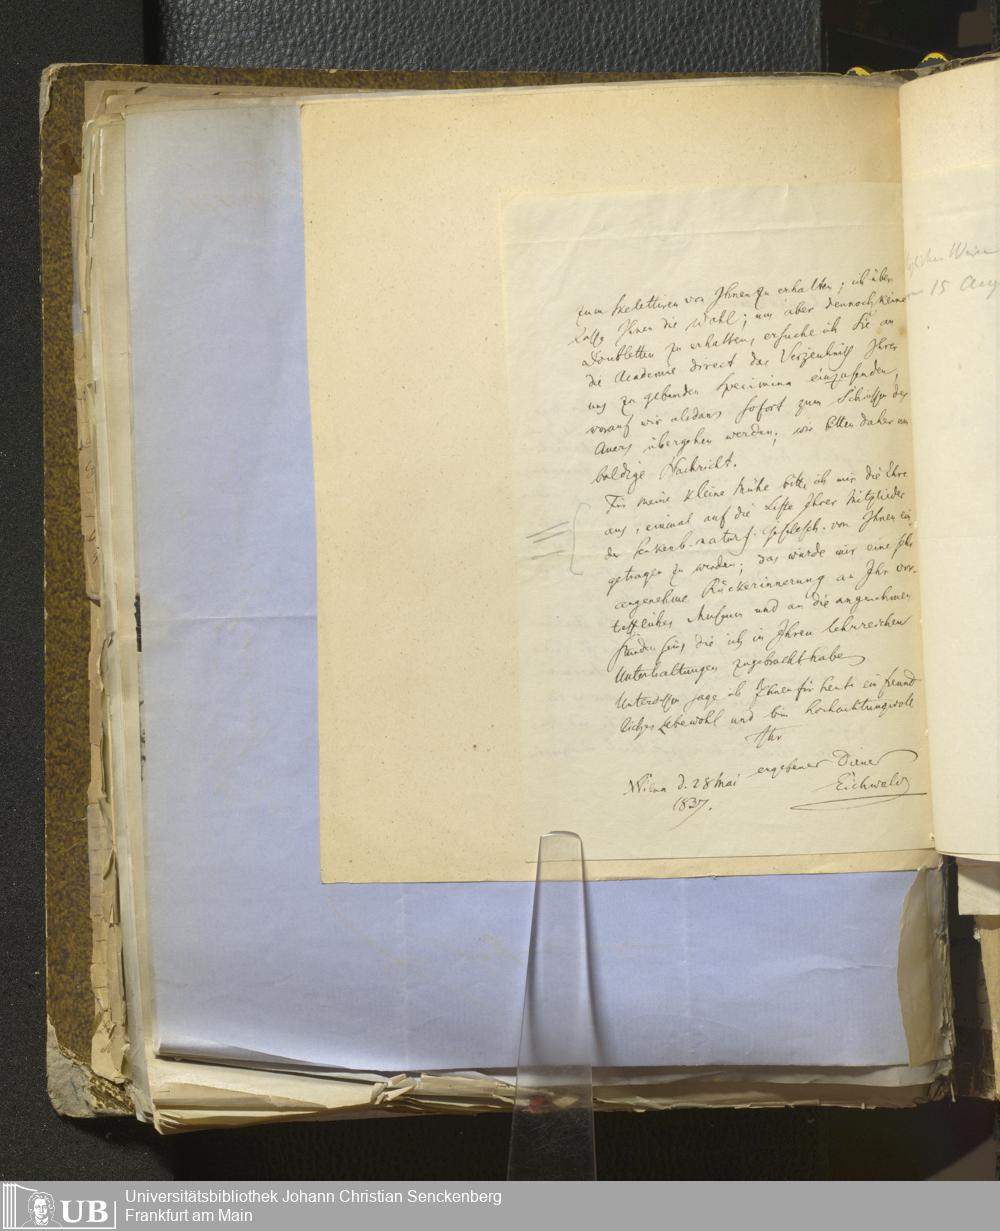 zum skelettiren von Ihnen zu erhalten; ich über-
lasse Ihnen die Wahl; um aber dennoch keine
Doubletten zu erhalten, ersuche ich Sie an
die Academie direct das Verzeichniß Ihrer
uns zu gebenden Specimina einzusenden,
worauf wir alsdann sofort zum Schiessen des
Auers übergehen werden; wir bitten daher um
baldige Nachricht.
Für meine kleine Mühe bitte ich mir die Ehre
aus, einmal auf die Liste Ihrer Mitglieder
der Senkenb. naturf. Gesellsch. von Ihnen ein
getragen zu werden; das würde mir eine sehr
angenehme Rückerinnerung an Ihr vor-
treffliches Museum und an die angenehmen
Stunden sein, die ich in Ihren lehrreichen
Unterhaltungen zugebracht habe.
Unterdessen sage ich Ihnen für heute ein freund
liches Lebewohl und bin hochachtungsvoll
Ihr
ergebener Diener
Wilna d. 28 Mai
Eichwald
1837.
15 Aug
UB
Universitätsbibliothek Johann Christian Senckenberg
Frankfurt am Main